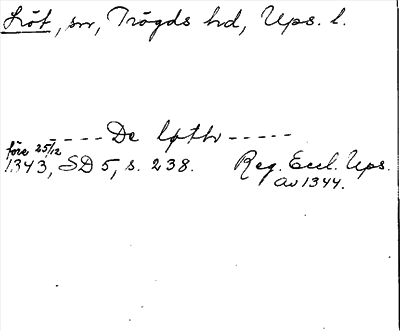 Löt, sn, Trögds hd, Ups. l.
---- De løth -----
före 25/12
1343, SD 5, s. 238. Reg. Eccl. Ups.
Av 1344.